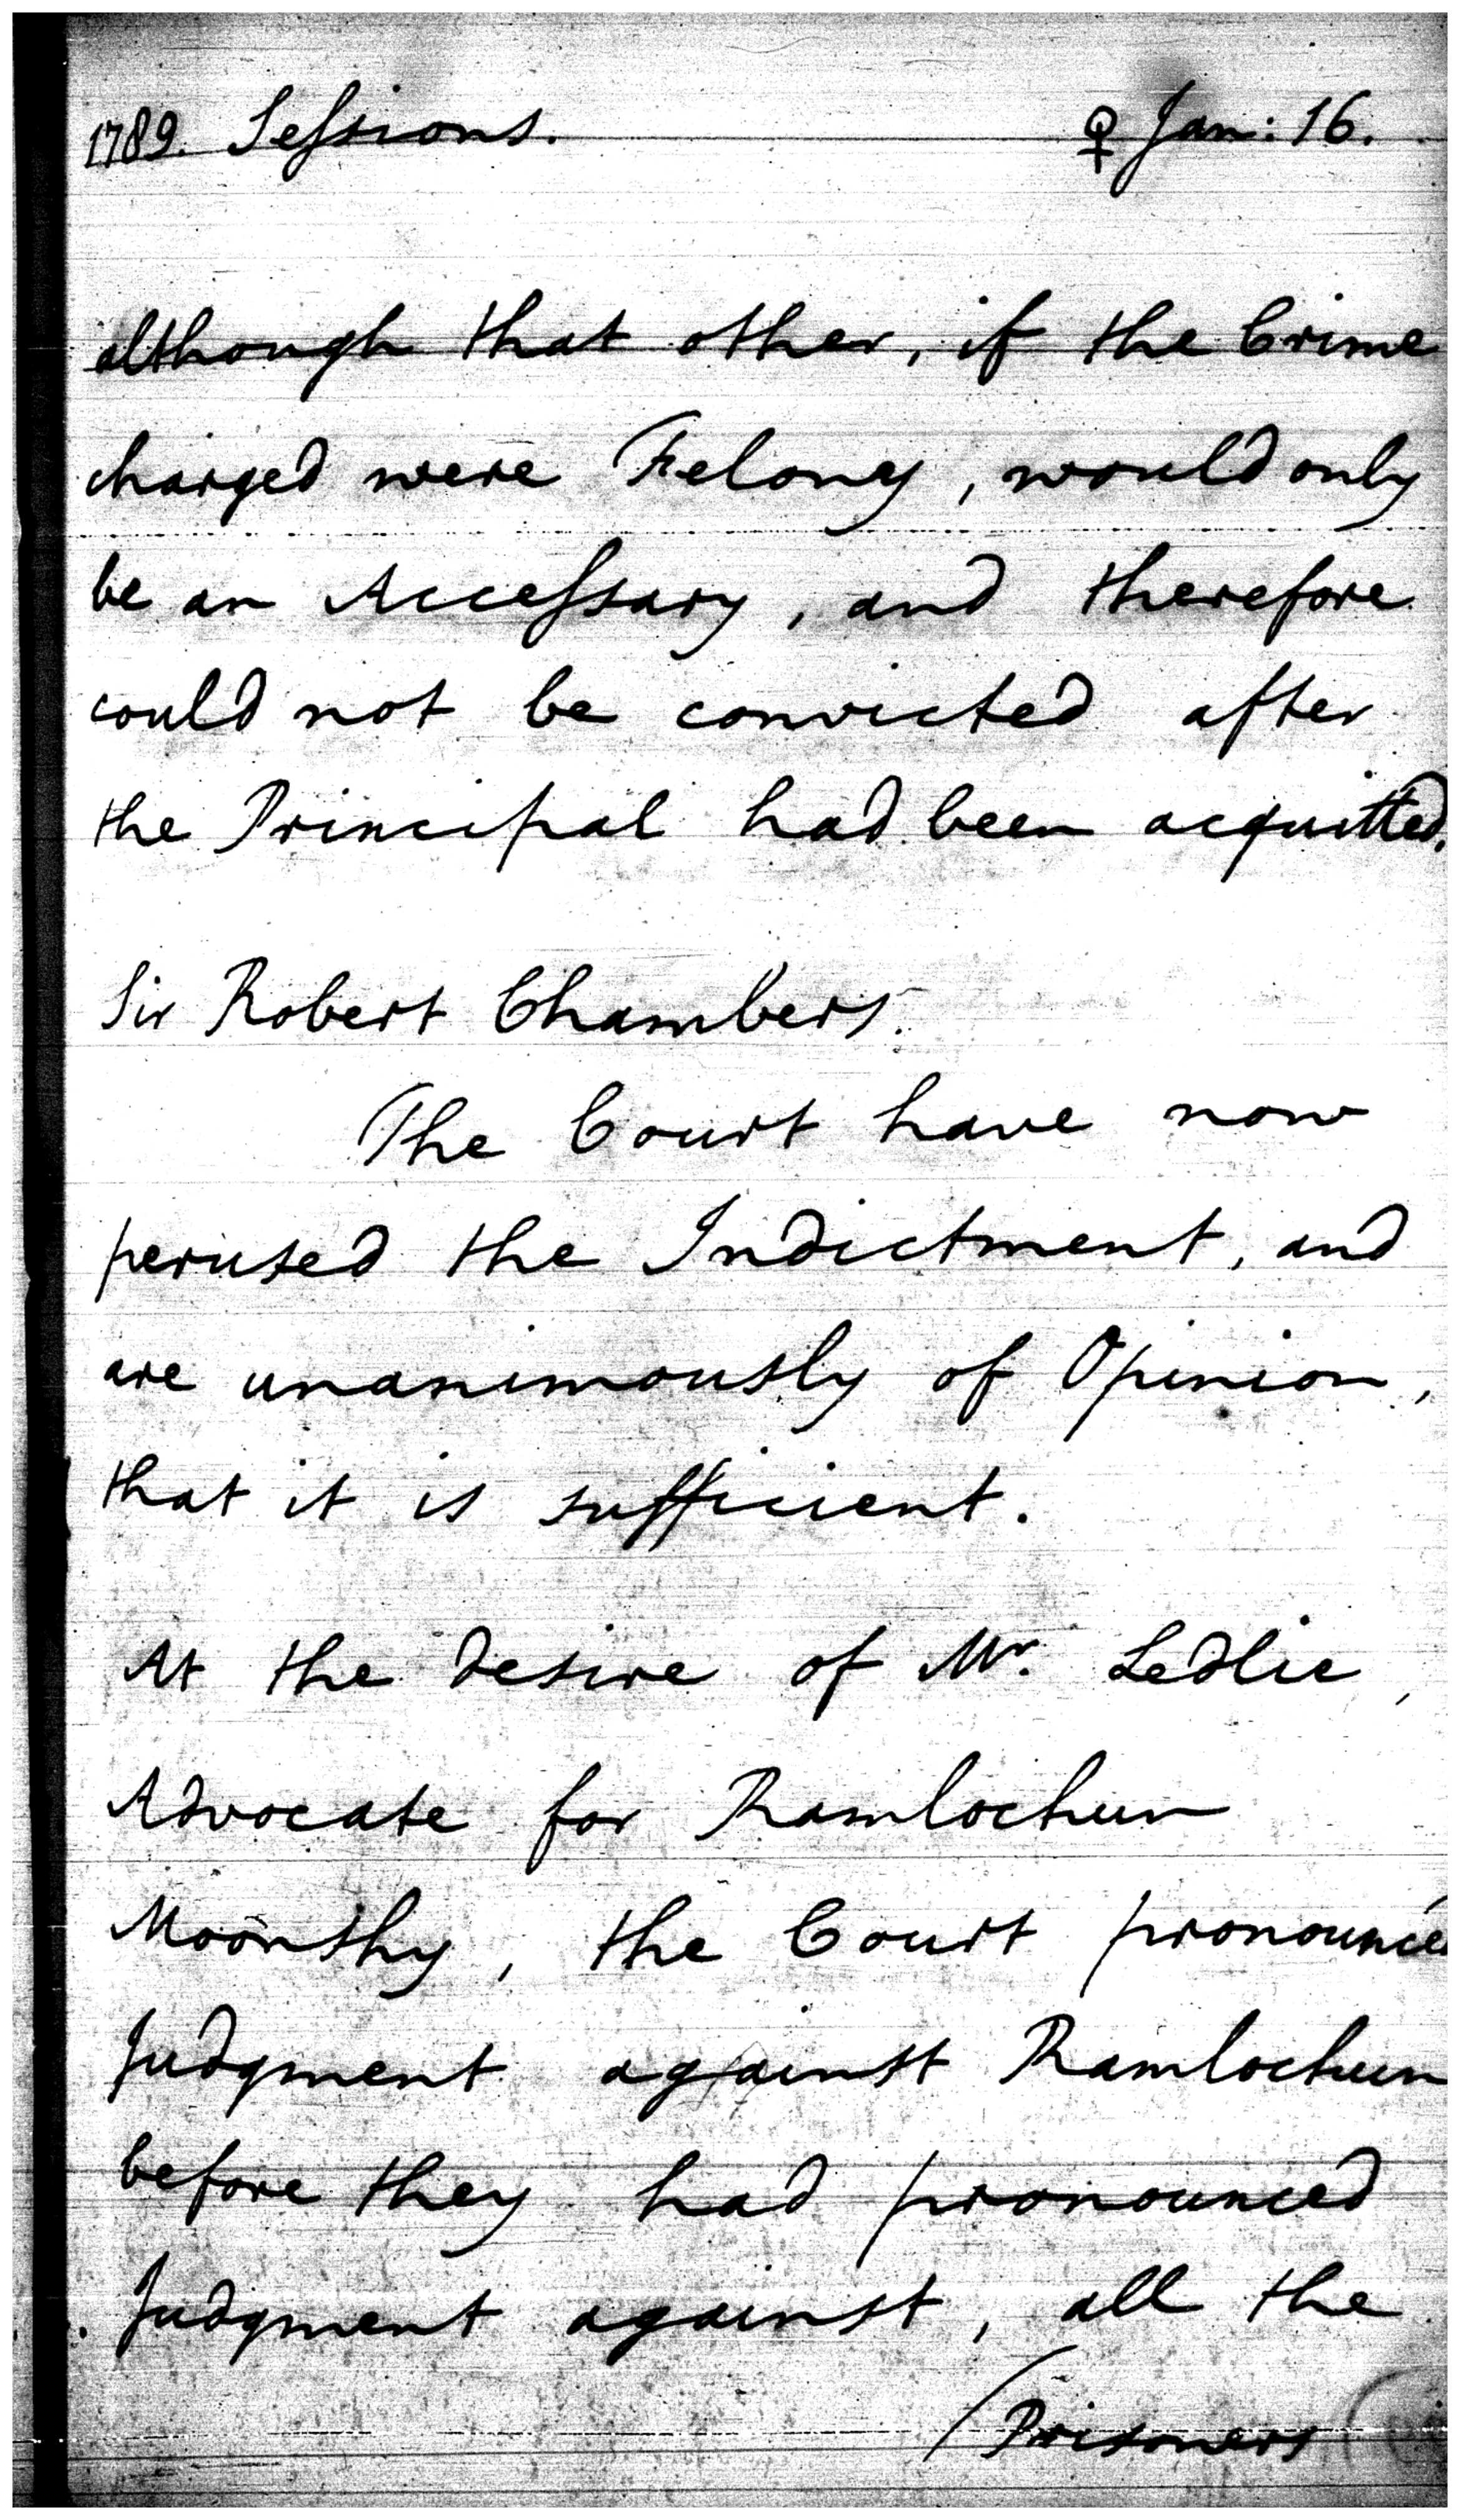 1789. Sessions. ♀ Jan: 16.
although that other, if the Crime
charged were Felony, would only
be an Accessary, and therefore
could not be convicted after
the Principal had been acquitted.
Sir Robert Chambers.
The Court have now
perused the Indictment, and
are unanimously of Opinion,
that it is sufficient.
At the desire of Mr. Ledlie,
Advocate for Ramlochun
Moonshy, the Court pronounced
Judgment against Ramlochun
before they had pronounced
Judgment against, all the
Prisoners